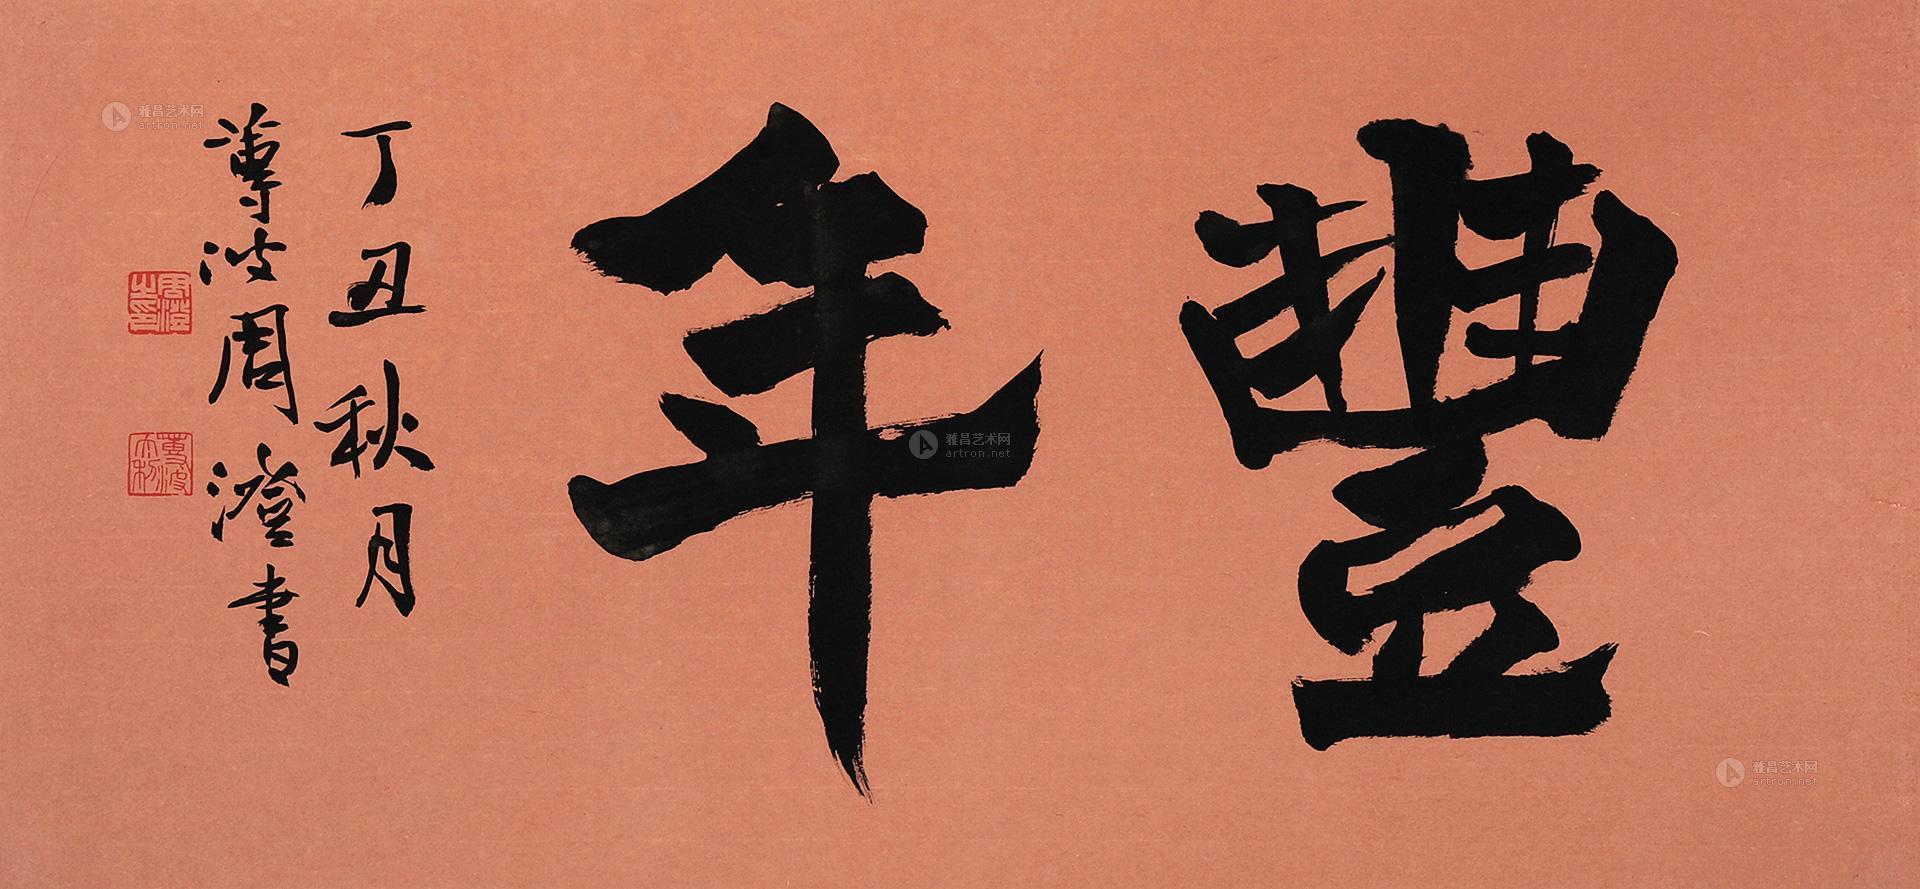 豐年
丁丑秋月
蓴波周澄書
周澄之印
雅昌艺术网
artron.net
雅昌艺术网
artron.net
雅昌艺术网
artron.net